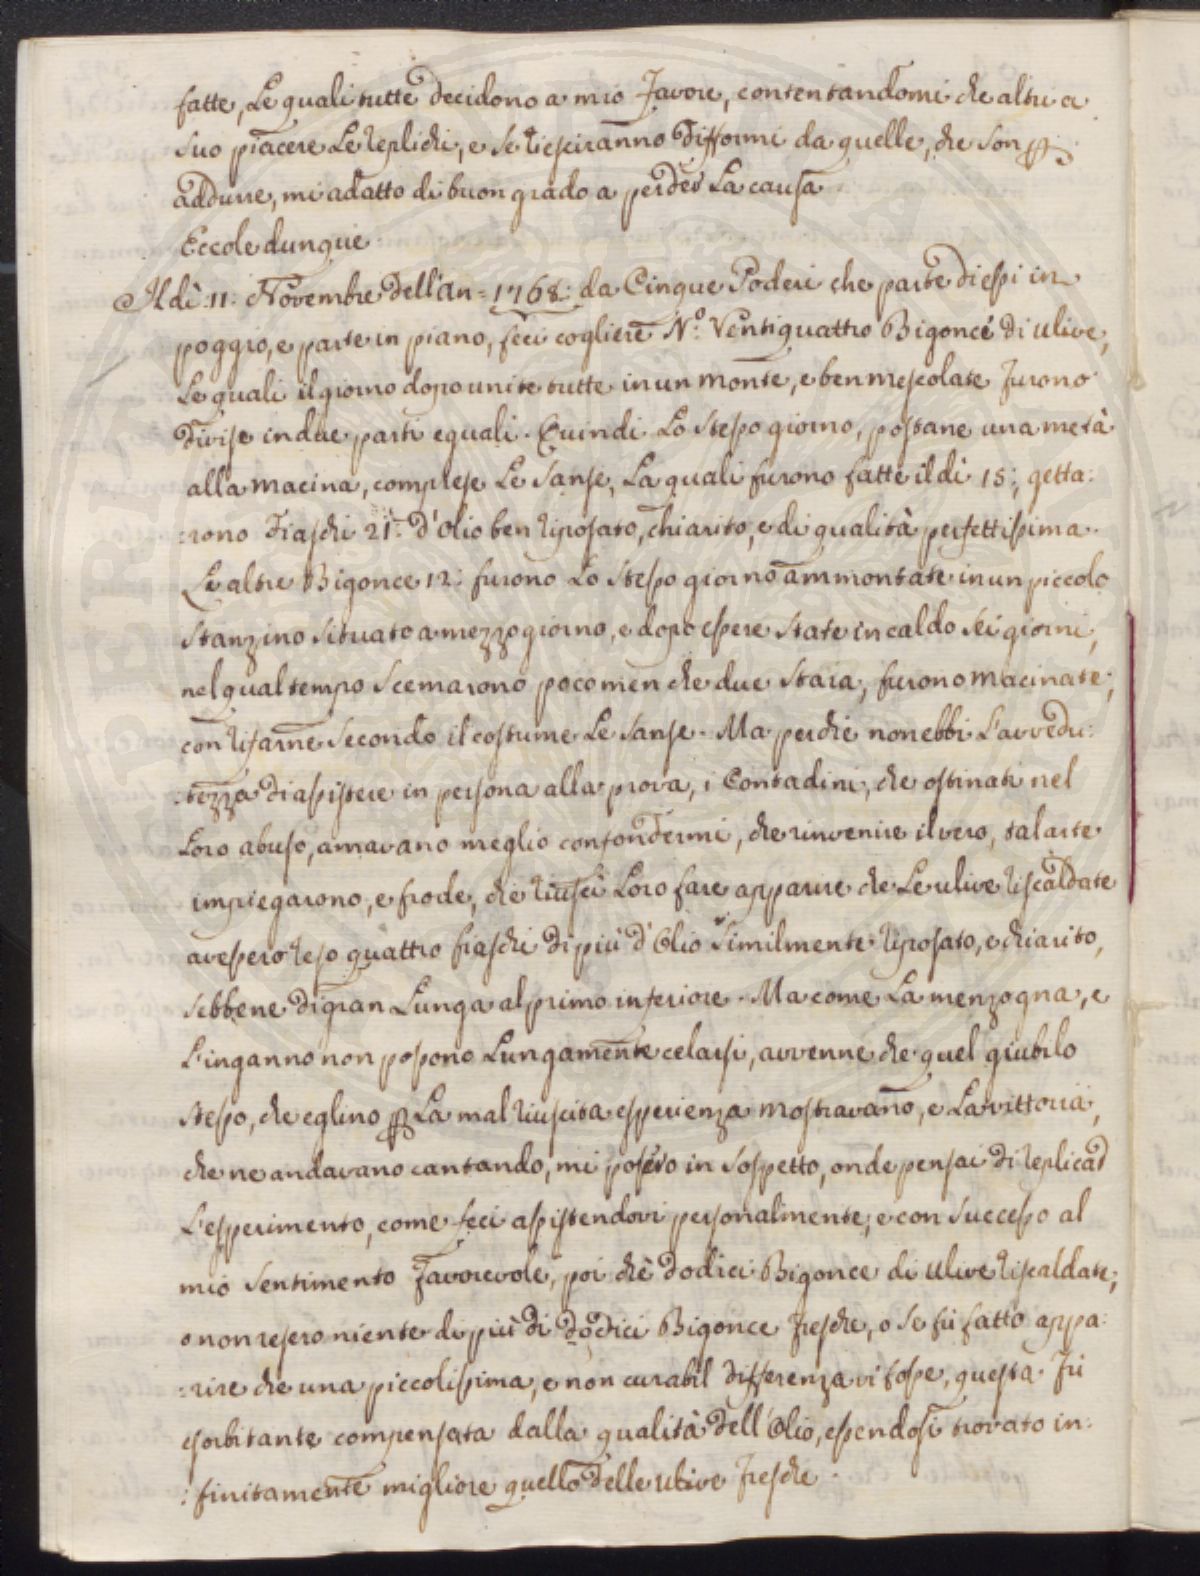 fatte, Le quali tutte decidono a mio Favore, contentandomi che altri a
suo piacere Le replichi, e se riesciranno difformi da quelle, che son p
addurre, mi adatto di buon grado a perder La causa.
Eccole dunque
Il dì 11: Novembre dell'an= 1768: da Cinque Poderi che parte di essi in
poggio, e parte in piano, feci cogliere N.º Ventiquattro Bigonce di ulive,
Le quali il giorno dopo unite tutte in un monte, e ben mescolate furono
divise in due parti eguali. Quindi Lo stesso giorno, postane una metà
alla macina, comprese Le Sanse, La quali furono fatte il dì 15:, getta:
:rono Fiaschi 21: d'Olio ben riposato, chiarito, e di qualità perfettissima.
Le altre Bigonce 12: furono Lo stesso giorno ammontate in un piccolo
stanzino situato a mezzogiorno, e dopo essere state in caldo sei giorni,
nel qual tempo scemarono poco men che due staia, furono macinate;
con rifarne secondo il costume Le Sanse. Ma perchè non ebbi L'avvedu:
:tezza di assistere in persona alla prova, i Contadini, che ostinati nel
Loro abuso, amavano meglio confondermi, che rinvenire il vero, tal arte
impiegarono, e frode, che riuscì Loro fare apparire che Le ulive riscaldate
avessero reso quattro fiaschi di più d'Olio similmente riposato, e chiarito,
sebbene di gran Lunga al primo inferiore. Ma come La menzogna, e
L'inganno non possono Lungamente celarsi, avvenne che quel giubilo
stesso, che eglino p La mal riuscita esperienza mostravano, e La vittoria,
che ne andavano cantando, mi posero in sospetto, onde pensai di replicar
L'esperimento, come feci assistendovi personalmente, e con successo al
mio sentimento Favorevole, poi chè dodici Bigonce di ulive riscaldate;
o non resero niente di più di dodici Bigonce fresche, o se fù fatto appa:
:rire che una piccolissima, e non curabil differenza vi fosse, questa fù
esorbitante compensata dalla qualità dell'Olio, essendosi trovato in:
:finitamente migliore quello delle ulive fresche.